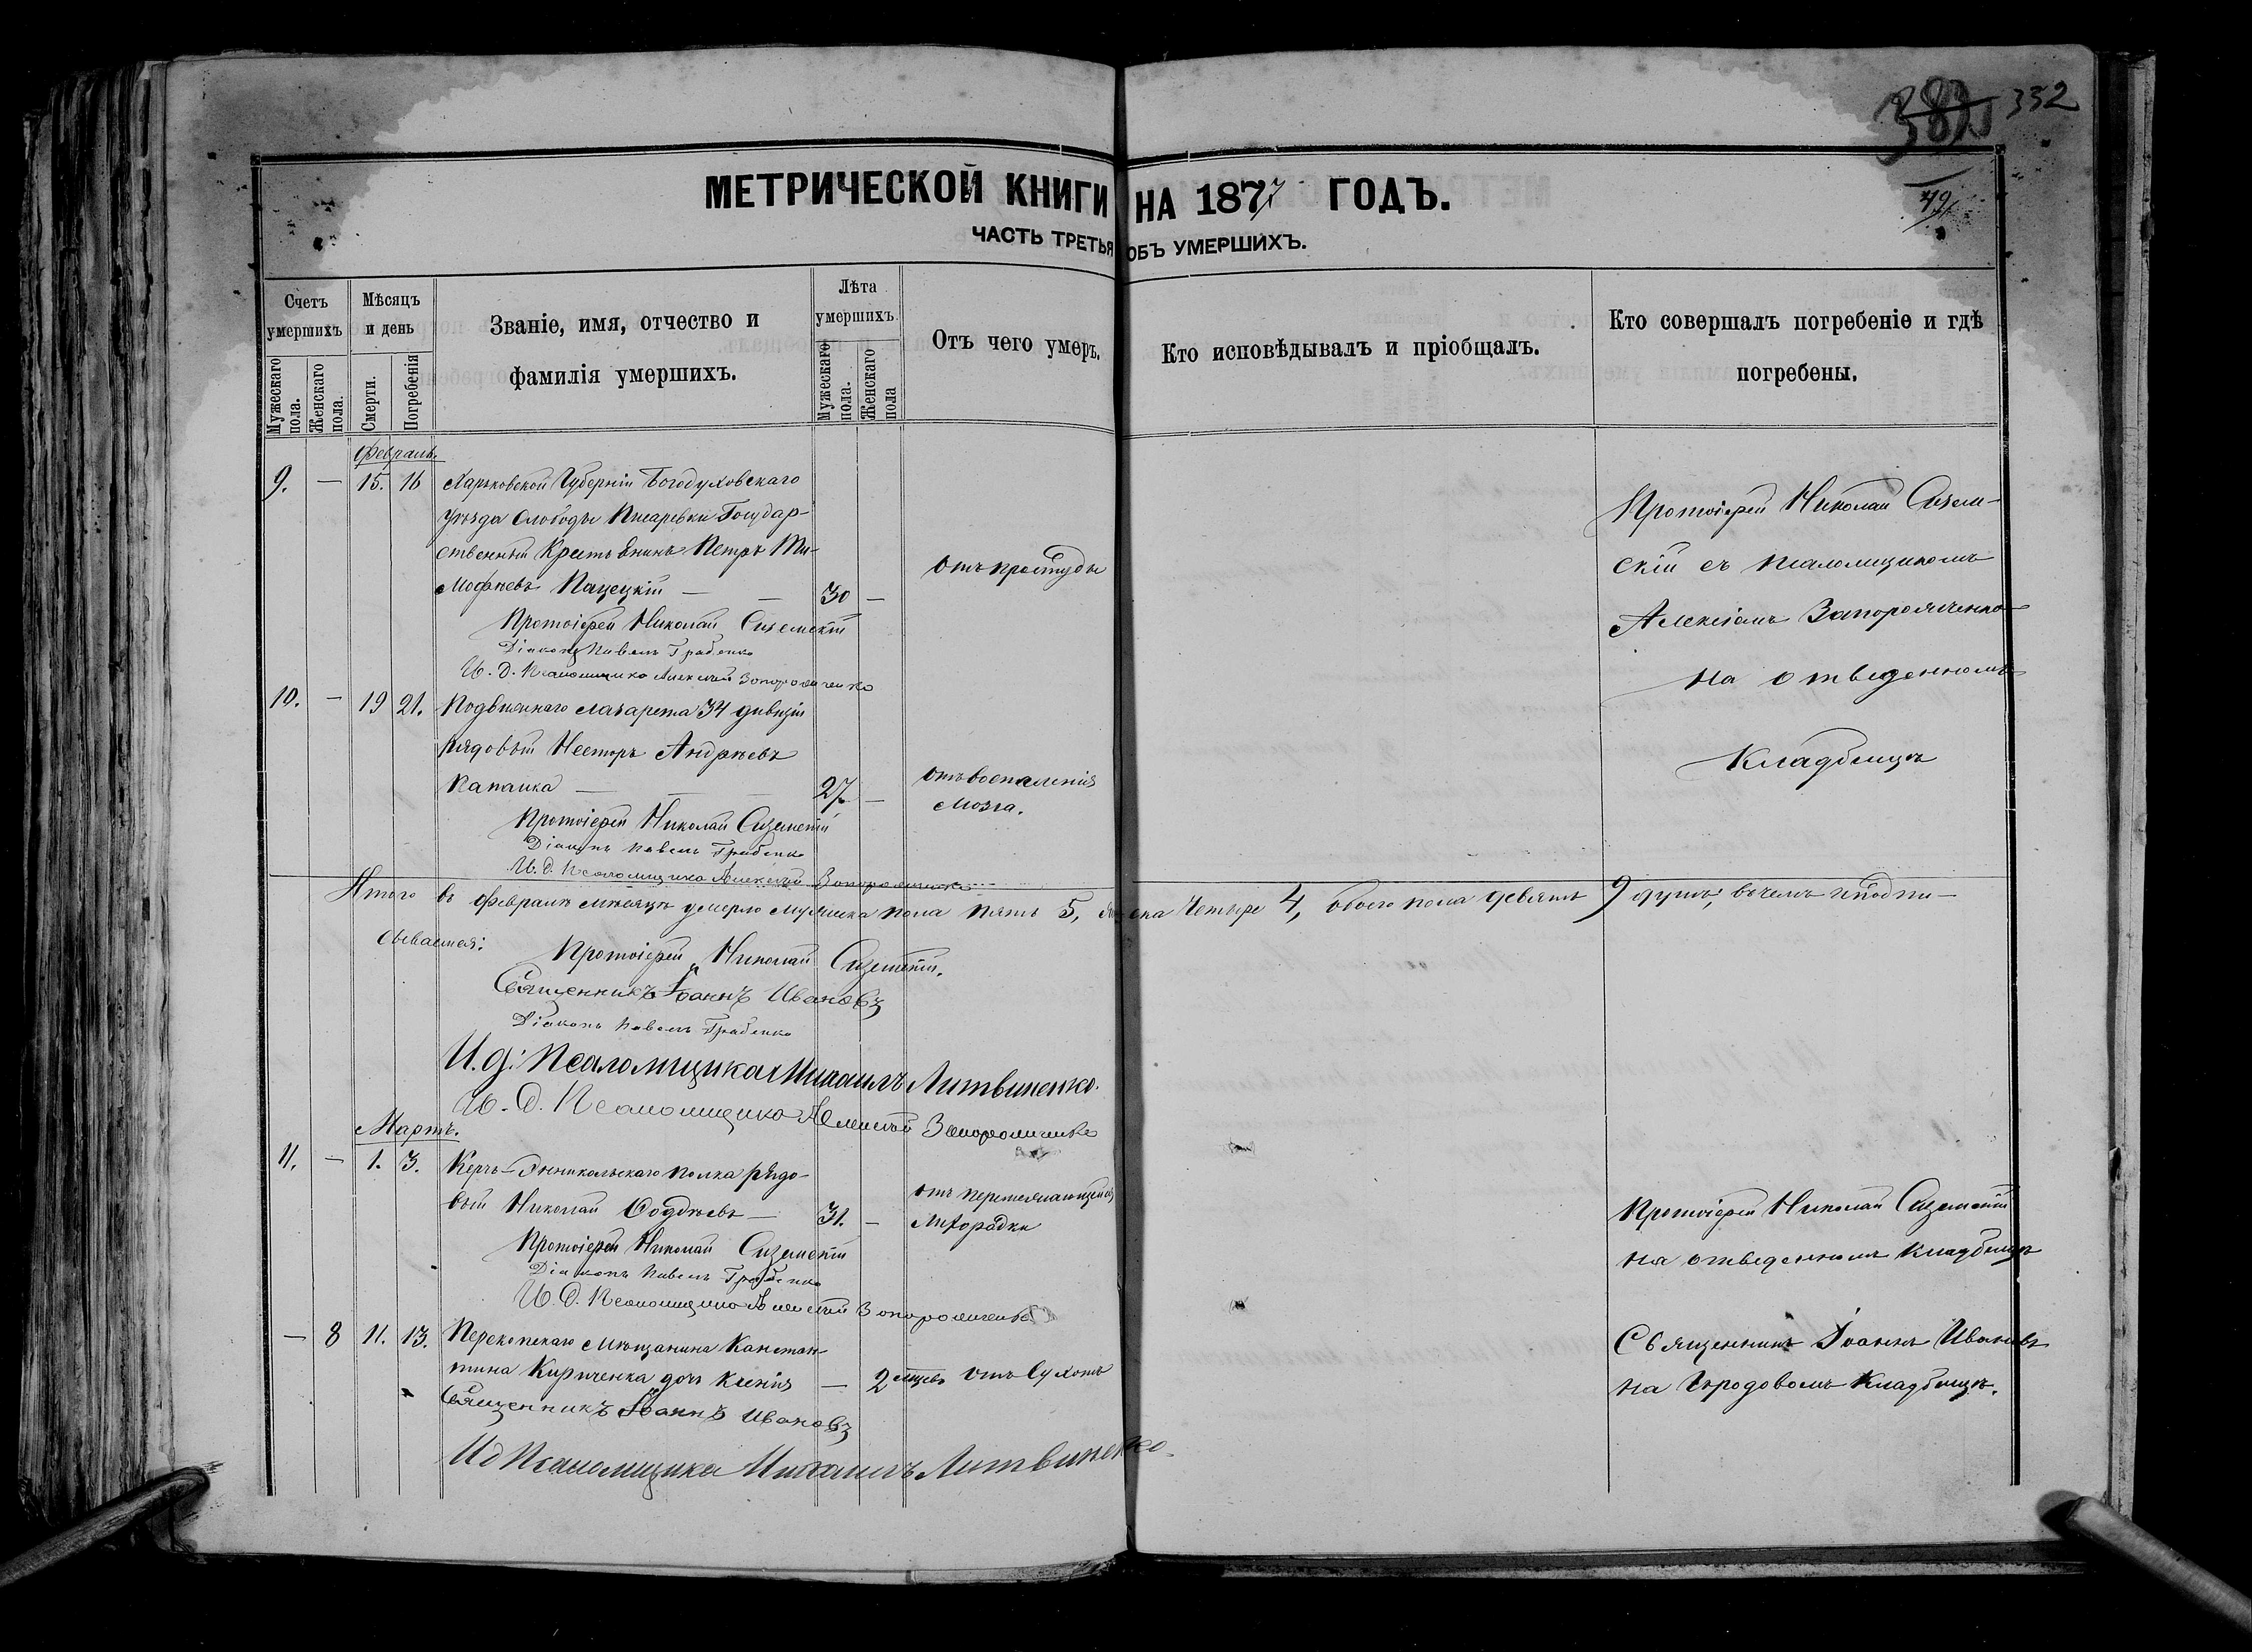 382 332
49
МЕТРИЧЕСКОЙ КНИГИ НА 1877 ГОДЪ.
ЧАСТЬ ТРЕТЬЯ ОБЪ УМЕРШИХЪ.
Счетъ умершихъ
Мужескаго пола.
Женскаго пола.
Мѣсяцъ и день
Смерти.
Погребенія
Званіе, имя, отчество и
фамилія умершихъ.
Лѣта умершихъ.
Мужескаго пола.
Женскаго пола
Отъ чего умеръ.
Кто исповѣдывалъ и пріобщалъ.
Кто совершалъ погребеніе и гдѣ
погребены.
Февраль.
9. — 15. 16 Харьковской Губерніи Богодуховскаго
уѣзда Слободы Писаревки Государ-
ственный Крестьянинъ Петръ Ти-
мофѣевъ Пацецкій — — 30 — Отъ простуды
Протоіерей Николай Сиземскій
Діаконъ Павелъ Грабенко
И. Д. Псаломщика Алексѣй Запорожченко
Протоіерей Николай Сизем-
скій съ псаломщикомъ
Алексіемъ Запорожченко
на отведенномъ
Кладбищѣ
10. — 19 21. Подвижнаго лазарета 34 дивизіи
рядовый Несторъ Андрѣевъ
Папаика — — — 27. — Отъ воспаленія
мозга.
Протоіерей Николай Сиземскій
Діаконъ Павелъ Грабенко
И. Д. Псаломщика Алексѣй Запорожченко
Итого въ Февралѣ мѣсяцѣ умерло мужеска пола пять 5, женска Четыре 4, обоего пола девять 9 душъ, въ чемъ и подпи-
сываемся:
Протоіерей Николай Сиземскій.
Священникъ Іоаннъ Ивановъ
Діаконъ Павелъ Грабенко
И. д: Псаломщика Михаилъ Литвиненко.
И. Д. Псаломщика Алексѣй Запорожченко
Мартъ.
11. — 1. 3. Керчь-Эникольскаго полка рядо-
вый Николай Ооддѣевъ — 31. — Отъ перемежающейся
лихорадки
Протоіерей Николай Сиземскій
Діаконъ Павелъ Грабенко
И. Д. Псаломщика Алексѣй Запорожченко
Протоіерей Николай Сиземскій
на отведенномъ Кладбищѣ
— 8 11. 13. Перекопскаго Мѣщанина Констан-
тина Кириченка дочь Ксенія — 2 мцевъ Отъ Сухотъ
Священникъ Іоаннъ Ивановъ
И д Псаломщика Михаилъ Литвиненко.
Священникъ Іоаннъ Ивановъ
на Городовомъ Кладбищѣ.